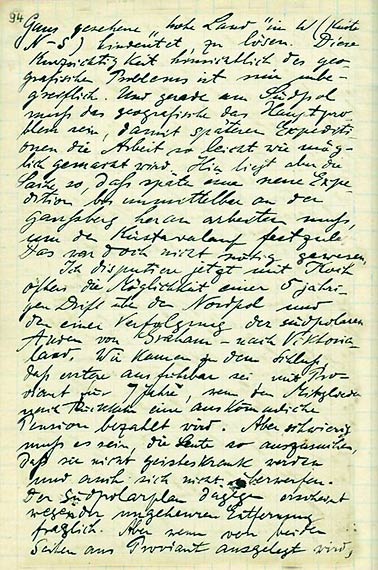 94
Gauss gesehene „hohe Land" in W (Küste
N-S) hindeutet, zu lösen. Diese
Kurzsichtigkeit hinsichtlich des geo-
grafischen Problems ist mir unbe-
greiflich. Und gerade am Südpol
muss das geografische das Hauptpro-
blem sein, damit späteren Expediti-
onen die Arbeit so leicht wie mög-
lich gemacht wird. Hier liegt aber die
Sache so, dass später eine neue Expe-
dition bis unmittelbar an den
Gaussberg heran arbeiten muss,
um den Küstenverlauf
Das war doch nicht nötig gewesen.
Ich disputiere jetzt mit Koch
öfters die Möglichkeit einer 5 jähri-
gen Drift über den Nordpol und
den einer Verfolgung der südpolaren
Anden von Graham- nach Viktoria-
land. Wir kamen zu dem Schluss,
dass erstere ausführbar sei mit Pro-
viant für 7 Jahre, wenn den Mitgliedern
nach Rückkehr eine auskömmliche
Pension bezahlt wird. Aber schwierig
muss es sein die Leute so auszusuchen,
dass sie nicht geisteskrank werden
und auch sich nicht überwerfen.
Der Südpolarplan dagegen erscheint
wegen der ungeheuren Entfernung
fraglich. Aber wenn von beiden
Seiten aus Proviant ausgelegt wird,